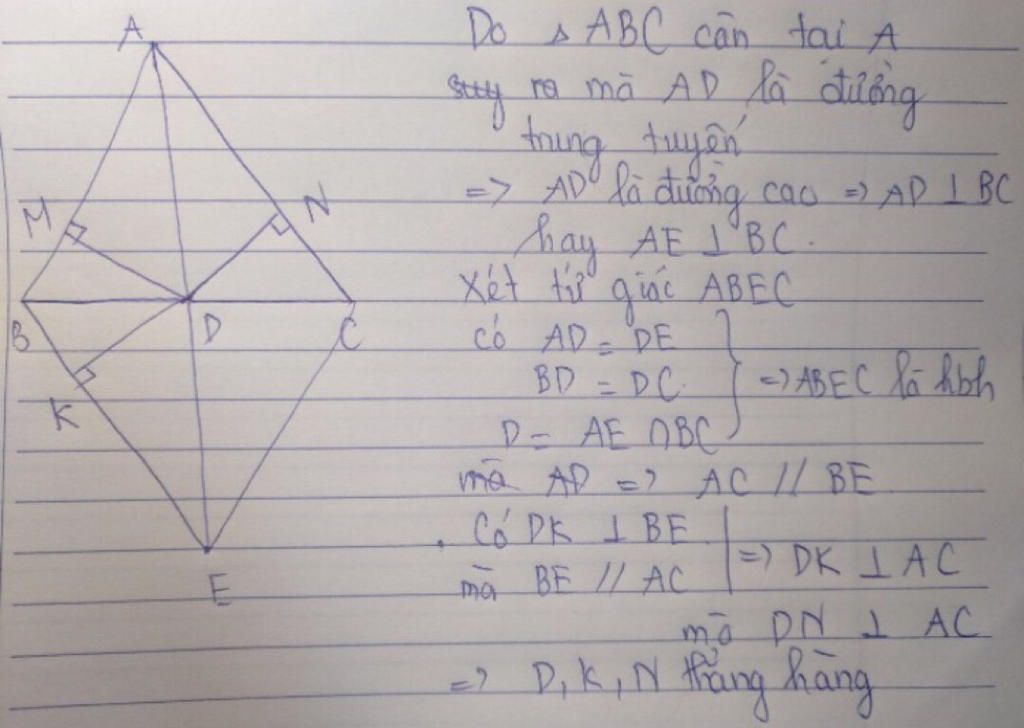 A
M
N
B
D
C
K
E
Do △ ABC cân tại A
suy ra mà AD là đường
trung tuyến
=> AD là đường cao => AD ⊥ BC
hay AE ⊥ BC.
Xét tứ giác ABEC
có AD = DE
BD = DC
=> ABEC là hbh
D = AE ∩ BC
mà AD => AC // BE
. Có DK ⊥ BE
mà BE // AC
=> DK ⊥ AC
mà DN ⊥ AC
=> D, K, N thẳng hàng